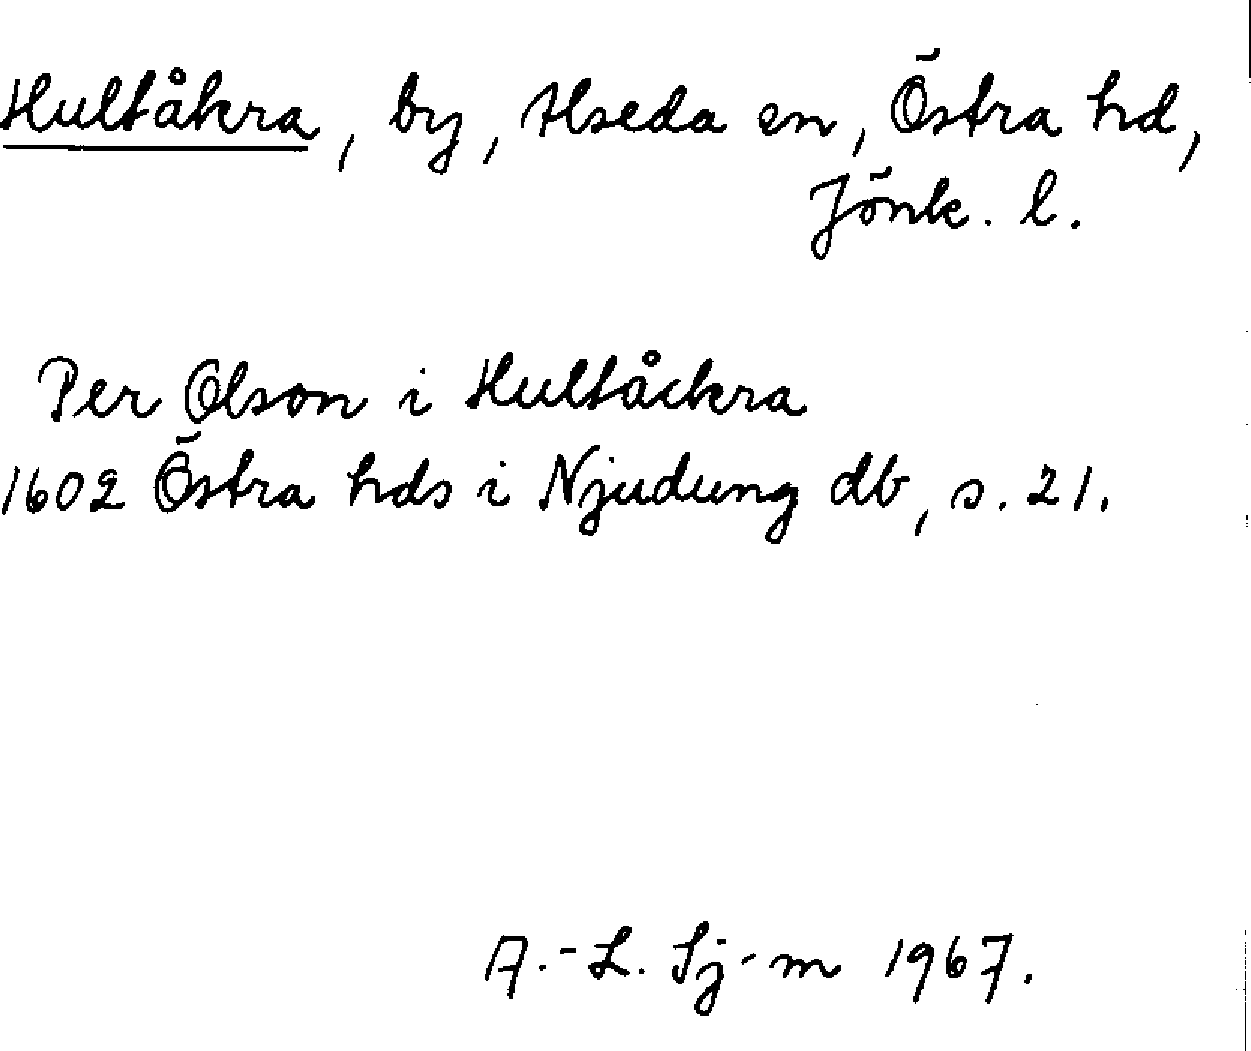 Hultåkra, by, Alseda sn, Östra hd,
Jönk. l.
Per Olson i Hultåckra
1602 Östra hds i Njudung db, s. 21.
A.-L. Sj-m 1967.